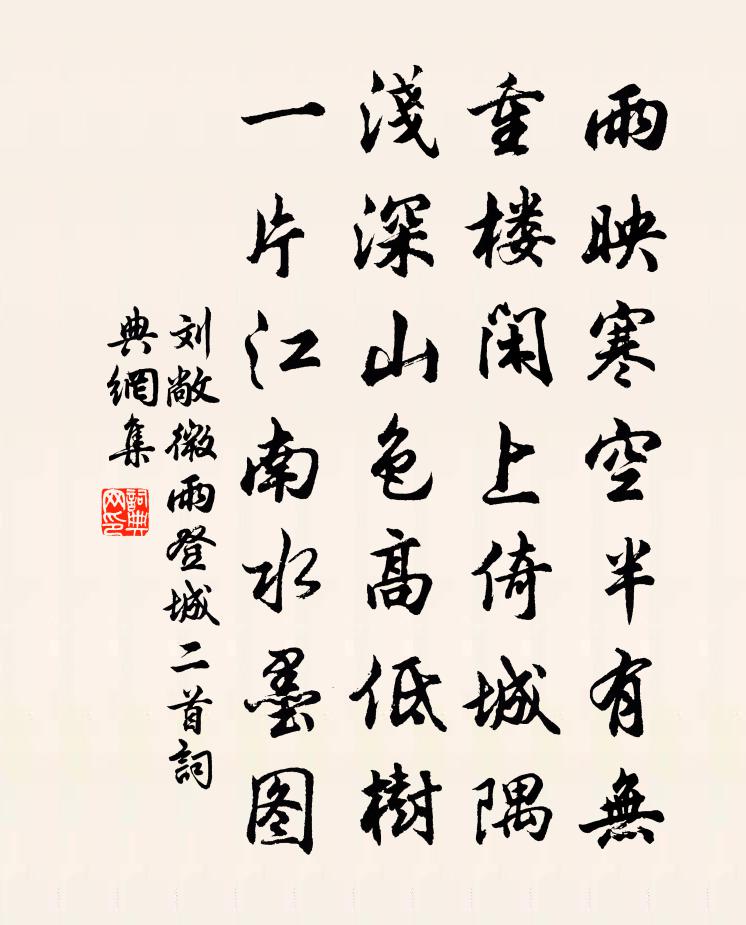 雨映寒空半有無
重楼閑上倚城隅
淺深山色高低樹
一片江南水墨图
刘敞微雨登城二首詞
典網集
詞典网印